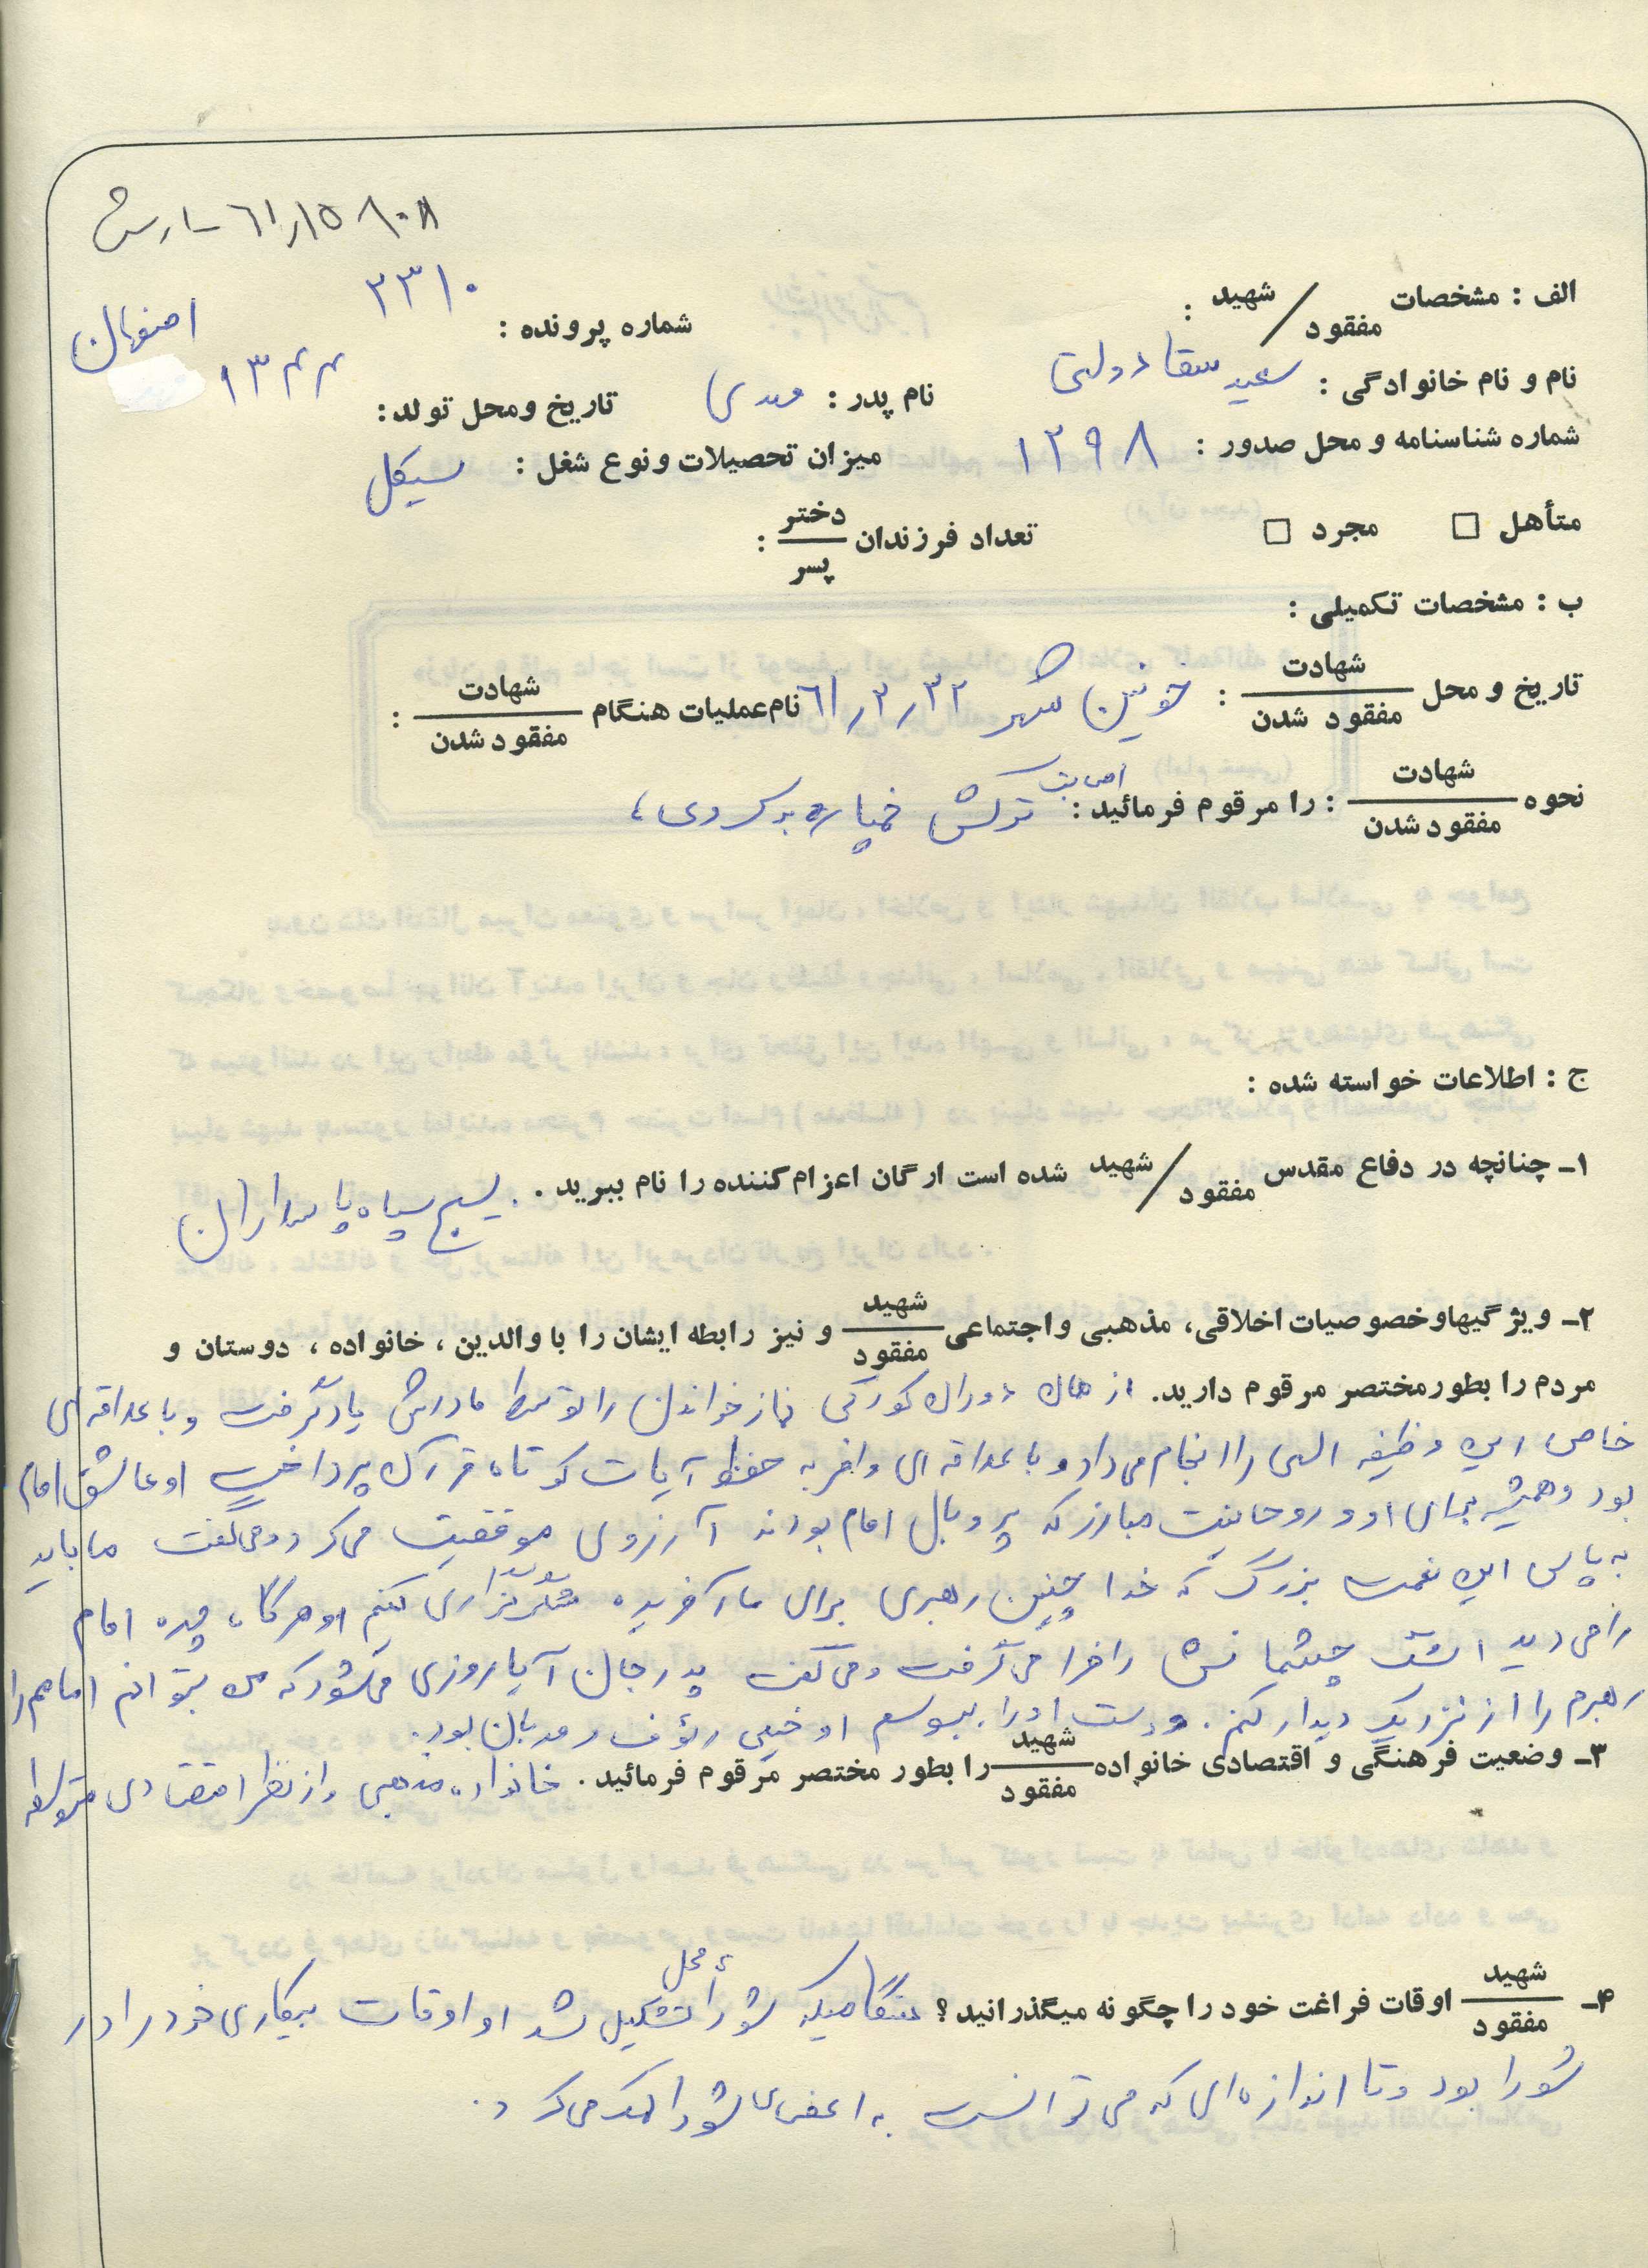 ۶۱٫۱۵۸۰۸
۲۳۱۰
اصفهان
الف : مشخصات شهید / مفقود :
شماره پرونده :
نام و نام خانوادگی : سعید سقا دولتی نام پدر : مهدی تاریخ ومحل تولد: ۱۳۴۴
شماره شناسنامه و محل صدور : ۱۲۹۸ میزان تحصیلات ونوع شغل : سیکل
متأهل □ مجرد □ تعداد فرزندان دختر / پسر :
ب : مشخصات تکمیلی :
تاریخ و محل شهادت / مفقود شدن : خونین شهر ۶۱٫۲٫۲۲ نام عملیات هنگام شهادت / مفقود شدن :
نحوه شهادت / مفقود شدن : را مرقوم فرمائید : اصابت ترکش خمپاره به
ج : اطلاعات خواسته شده :
۱ـ چنانچه در دفاع مقدس شهید / مفقود شده است ارگان اعزام کننده را نام ببرید . بسیج سپاه پاسداران
۲ـ ویژگیها و خصوصیات اخلاقی، مذهبی واجتماعی شهید / مفقود و نیز رابطه ایشان را با والدین ، خانواده ، دوستان و
مردم را بطور مختصر مرقوم دارید. از همان دوران کودکی نماز خواندن را توسط مادرش یاد گرفت و با علاقه ای
خاص این وظیفه الهی را انجام می داد و با علاقه ای وافر به حفظ آیات کوتاه قرآن پرداخت او عاشق امام
بود و همیشه برای او و روحانیت مبارز که پر و بال امام بودند آرزوی موفقیت می کرد و می گفت ما باید
به پاس این نعمت بزرگ که خدا چنین رهبری برای ما آفریده شکرگزاری کنیم او هرگاه چهره امام
را می دید اشک چشمانش را فرا می گرفت و می گفت پدر جان آیا روزی می شود که من بتوانم امامم را
رهبرم را از نزدیک دیدار کنم . و دست او را ببوسم او خیلی رؤف و مهربان بود.
۳ـ وضعیت فرهنگی و اقتصادی خانواده شهید / مفقود را بطور مختصر مرقوم فرمائید . خانواده مذهبی و از نظر اقتصادی متوسط
۴ـ شهید / مفقود اوقات فراغت خود را چگونه میگذرانید ؟ هنگامیکه شورای محل تشکیل شد او اوقات بیکاری خود را در
شورا بود و تا اندازه ای که می توانست به اعضای شورا کمک می کرد .